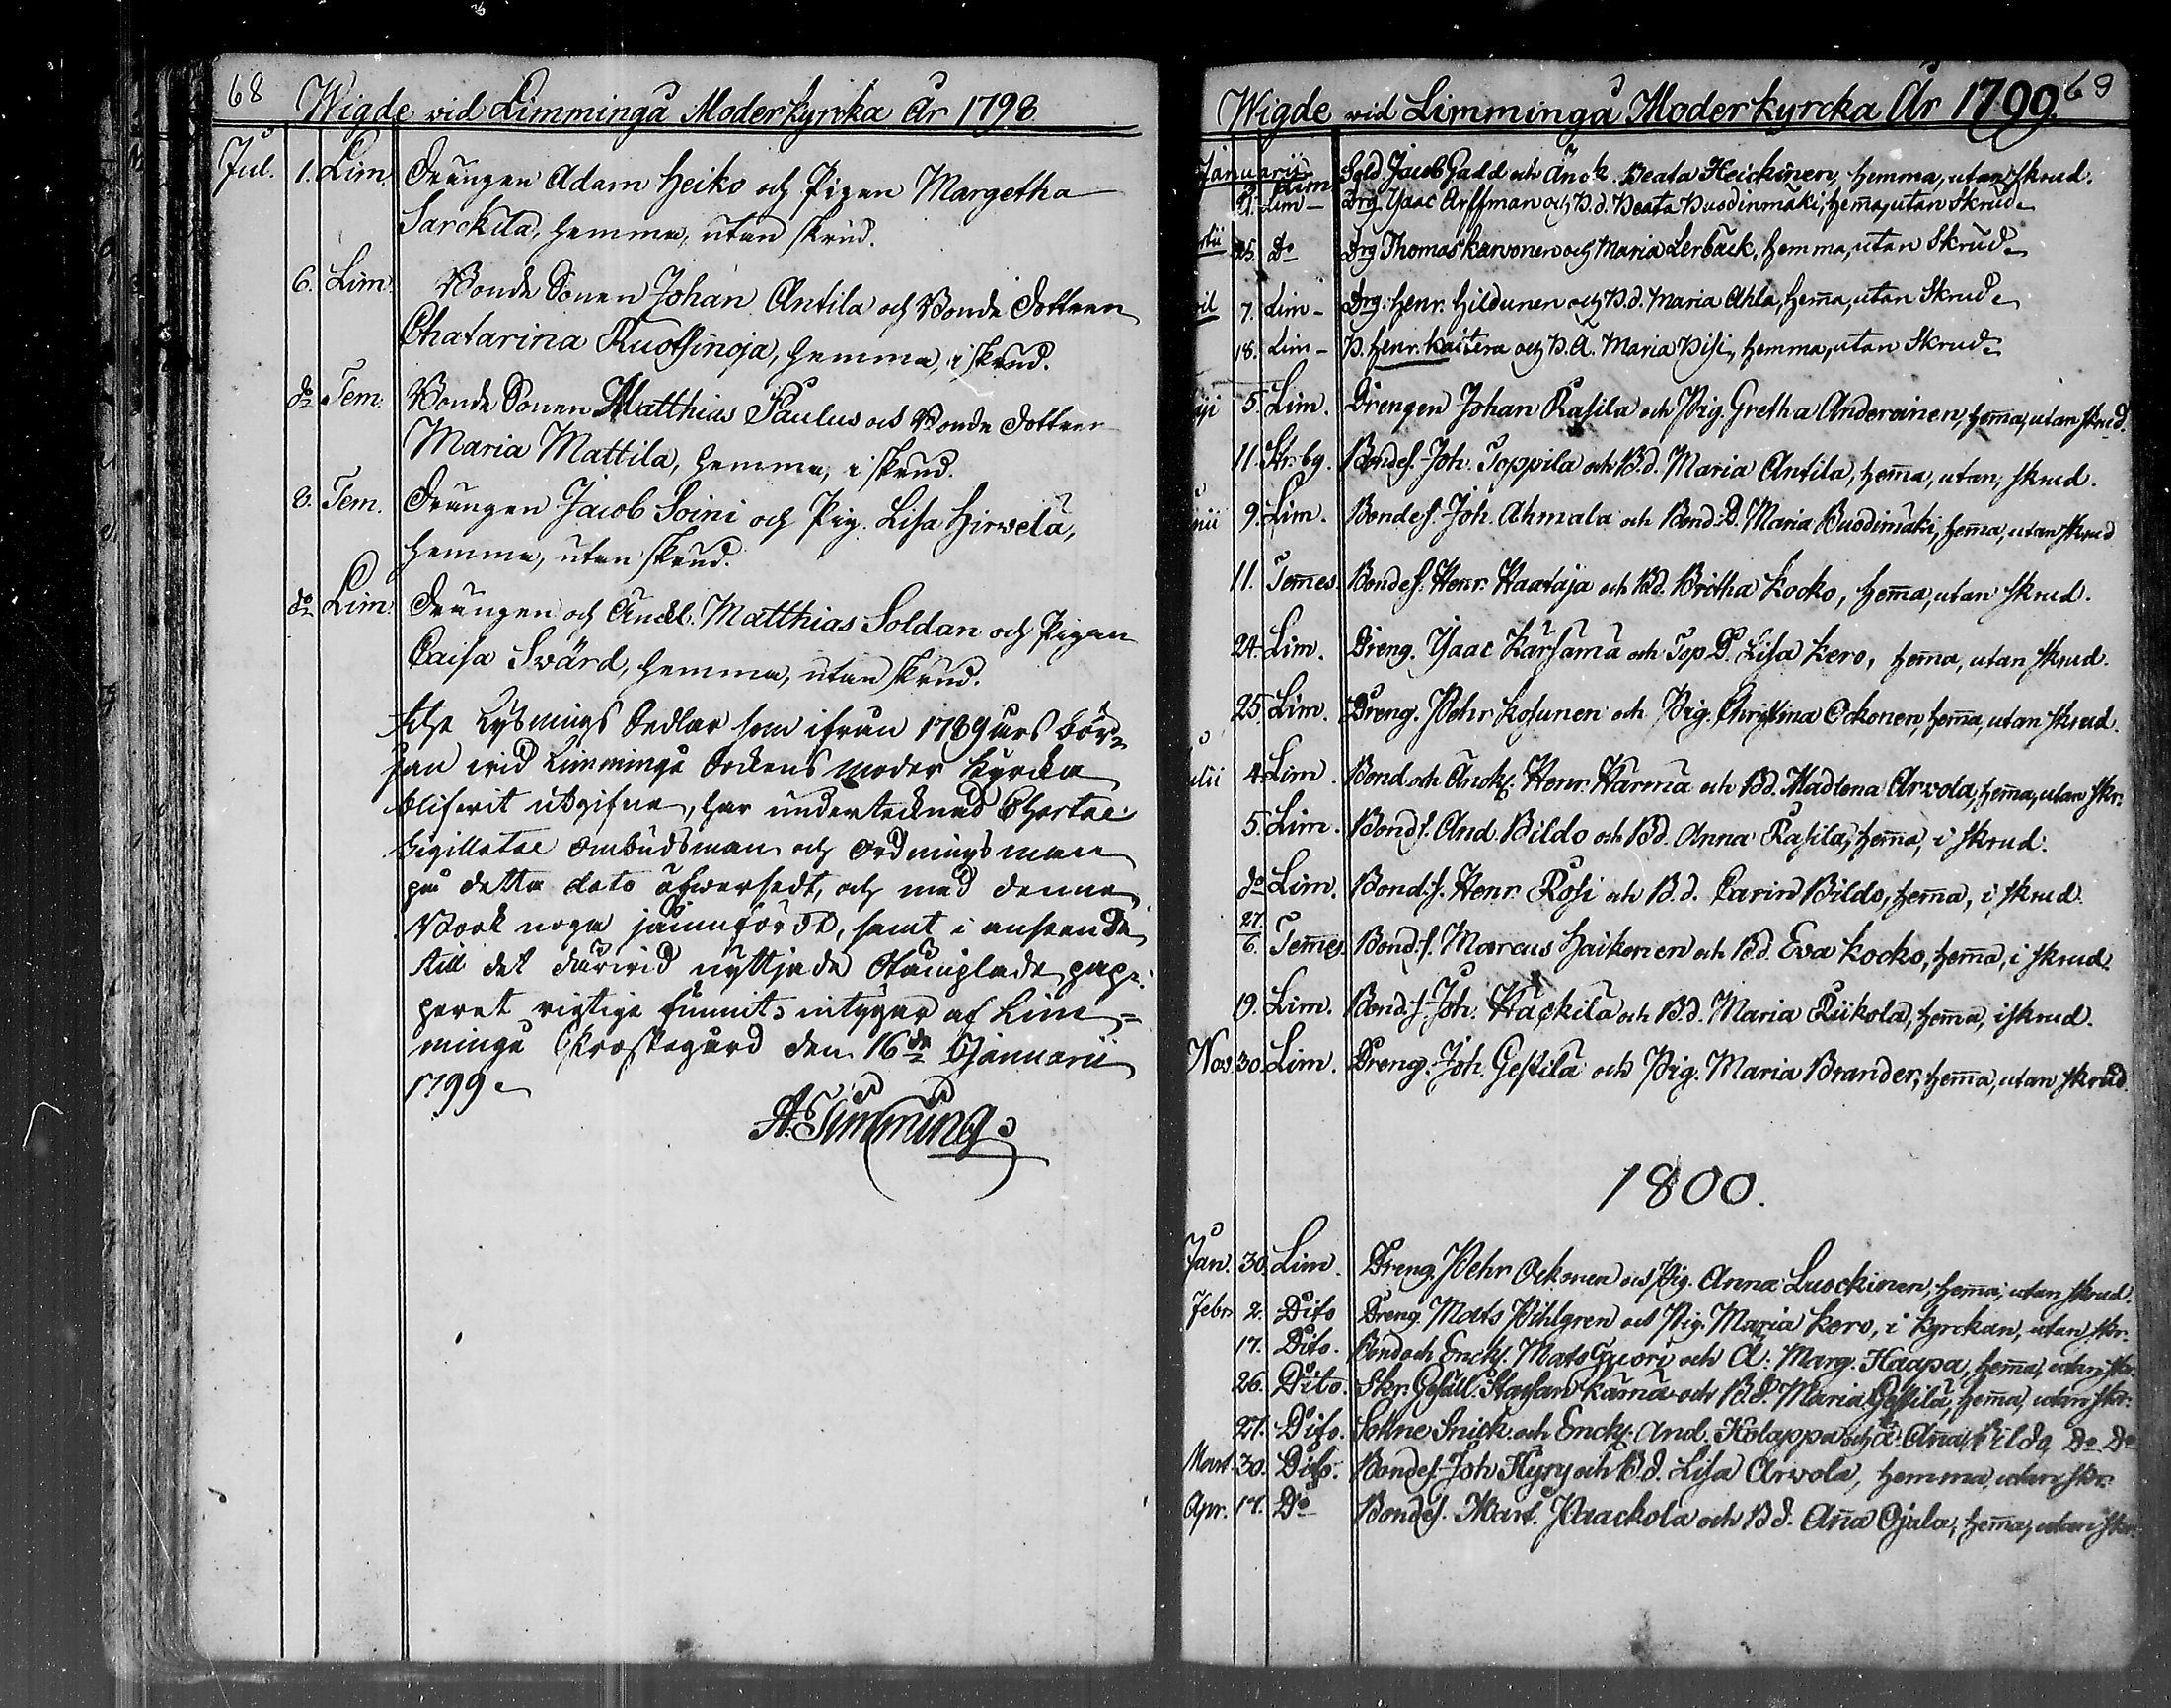 68 Wigde vid Limminga Moderkyrcka År 1798
Jul. 1. Lim. Drängen Adam Heiko och Pigan Margetha
Sarckila, hemma, utan skrud.
6. Lim. Bonde Sonen Johan Antila och Bonde Dottren
Chatarina Ruotsinoja, hemma, i skrud.
do Tem. Bonde Sonen Matthias Paulus och Bonde Dottren
Maria Mattila, hemma, i skrud.
8. Tem. Drängen Jacob Soini och Pig. Lisa Hirwelä,
hemma, utan skrud.
do Lim. Drängen och Änckl. Matthias Soldan och Pigan
Caisa Svärd, hemma, utan skrud.
Lysnings Sedlar som ifrån 1789 års bör-
jan vid Limminga Sockens Moder Kyrcka
blifwit utgifne, har undertecknad Chartae
Sigillatae Ombudsman och Ordningsman
på detta dato öfwersedt, och med denne
Book noga jämnfördt, samt i anseende
till det därvid nyttjade Stämplade pap-
peret rigtige funnit; intygar af Lim-
minga Prostegård den 16de Januarii
1799
A. Limming
Wigde vid Limminga Moderkyrcka År 1799. 69
Januarii Lim Sold. Jacob Gadd och Änck. Beata Heickinen, hemma, utan skrud.
Lim- Drg Isaac Arffman och B.d. Beata Buodinmäki, hema, utan Skrud
25. Do Drg Thomas Karvonen och Maria Lerbäck, hemma, utan Skrud
7. Lim- Drg. Henr. Hildunen och B.d. Maria Ahla, hema, utan Skrud
18. Lim- B. Henr. Kaitera och B.Ä. Maria Piisi, hemma, utan Skrud
5. Lim. Drengen Johan Rasila och Pig. Gretha Anderainen, hema, utan skrud.
11. Skr.bg. Bondes. Joh. Toppila och B.d. Maria Antila, hema, utan skrud.
nii 9. Lim. Bondes. Joh. Ahmala och Bond.D. Maria Buodimäki, hema, utan skrud
11. Temes. Bondes. Henr. Haataja och B.d. Britha Kocko, hema, utan skrud.
24. Lim. Dreng. Isaac Kärsämä och Top D. Lisa Kero, hema, utan skrud.
25. Lim. Dreng. Pehr Kosunen och Pig. Christina Ockonen, hema, utan skrud.
ulii 4. Lim. Bond och Änckl. Henr. Härmä och Bd. Madlena Arvola, hema, utan skr.
5. Lim. Bond s. And. Bildo och Bd. Anna Rasila, hema, i skrud.
do Lim. Bond.s. Henr. Rosi och B.d. Carin Bildo, hema, i skrud.
27.
6. Temes. Bond.s. Marcus Haikonen och B.d. Eva Kocko, hema, i skrud.
19. Lim. Bond.s. Joh. Häckilä och B.d. Maria Riikola, hema, i skrud.
Nov. 30. Lim. Dreng. Joh. Gestilä och Pig. Maria Brander, hema, utan skrud.
1800.
Jan. 30. Lim. Dreng. Pehr Ockonen och Pig. Anna Luockinen, hema, utan skrud.
Febr. 2. Dito Dreng. Mats Pihlgren och Pig. Maria Kero, i Kyrckan, utan skr.
17. Dito. Bond och Enckl. Mats Tuori och Ä. Marg. Haapa, hema, utan skr.
26. Dito. Skr. Gesäll. Staffan Kämä och B.d. Maria Gestilä, hema, utan skr.
27. Dito. Sokne Snick. och Enckl. And. Kolappa och Ä. Aña Pildo Do Do
Mart. 30. Dito. Bondes. Joh Hyry och B.d. Lisa Arvola, hemma, utan skr.
Apr. 17. Do Bondes. Mart. Paackola och B.d. Aña Ojala, hema, utan skr.